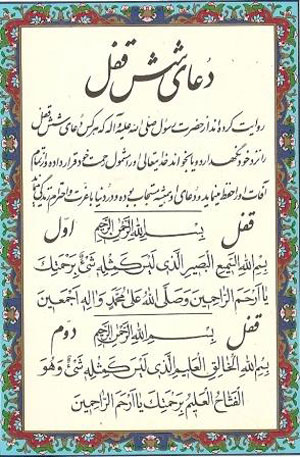 دعای شش قفل
روایت کرده‌اند از حضرت رسول صلی الله علیه و آله که هر کس دعای شش قفل
را نزد خود نگهدارد و یا بخواند خدایتعالی او را مشمول رحمت خود قرار داده و از تمام
آفات او را حفظ مینماید و دعای او همیشه مستجاب بوده و در دنیا با عزت و احترام زندگی کند
قفل بِسْمِ اللهِ الرَّحْمٰنِ الرَّحیمِ اوّل
بِسْمِ اللهِ السَّمیعِ الْبَصیرِ الَّذی لَیْسَ کَمِثْلِهِ شَیْءٌ بِرَحْمَتِكَ
یا اَرْحَمَ الرّاحِمینَ وَصَلَّی اللهُ عَلیٰ مُحَمَّدٍ وَ الِهِ اَجْمَعینَ
قفل بِسْمِ اللهِ الرَّحْمٰنِ الرَّحیمِ دوم
بِسْمِ اللهِ الْخالِقِ الْعَلیمِ الَّذی لَیْسَ کَمِثْلِهِ شَیْءٌ وَهُوَ
الْفَتّاحُ الْعَلیمُ بِرَحْمَتِكَ یا اَرْحَمَ الرّاحِمینَ